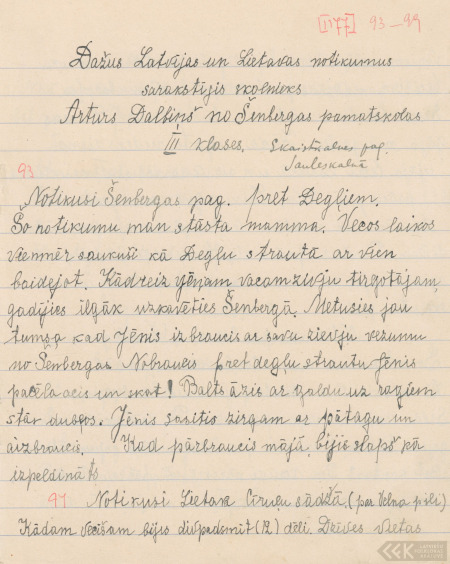 [1177] 93-99
Dažus Latvijas un Lietavas notikumus
sarakstījis skolnieks
Arturs Dalbiņš no Šenbergas pamatskolas
III klases. Skaistkalnes pag.
Sauleskalnā
93
Notikusi Šenbergas pag. pret Degļiem.
Šo notikumu man stāsta mamma. Vecos laikos
vienmēr saukuši kā Degļu strautā ar vien
baidējot. Kādreiz vecam zivju tirgotājam
gadījies ilgāk uzkavēties Šenbergā. Metusies jau
tumsa kad Jēnis izbraucis ar savu zievju vezumu
no Šenbergas. Nobraucis pret degļu strautu Jēnis
pacēla acis un skat! Balts āzis ar galdu uz ragiem
stāv dubļos. Jēnis sasitis zirgam ar pātagu un
aizbraucis. Kad pārbraucis mājā, bijis slapš kā
izpeldināts
94 Notikusi Lietavā Cīruļu sādžā, (par Velna pili)
Kādam večišam bijuš divpadsmit (12) dēli. Dzīves vietas